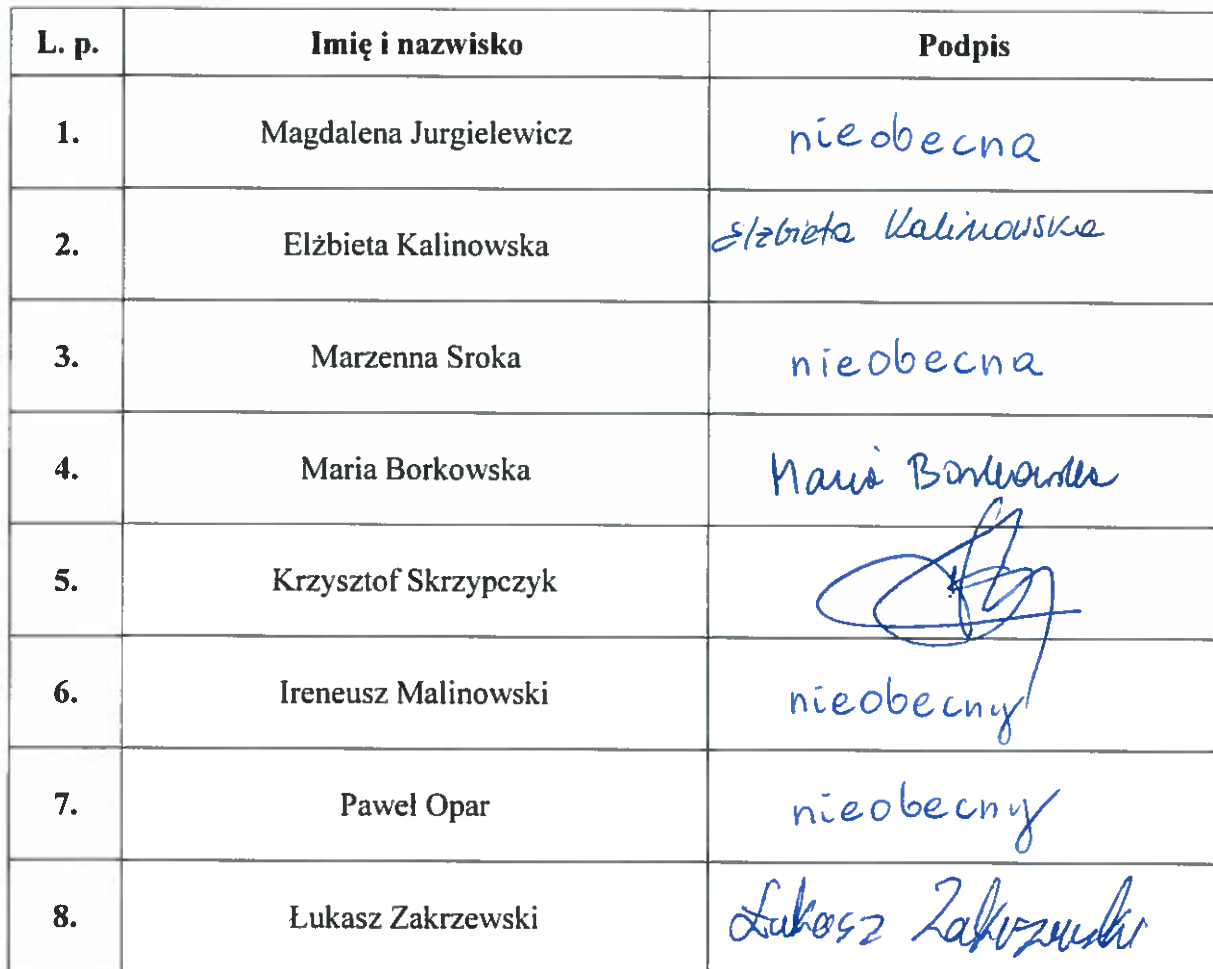 L. p. Imię i nazwisko Podpis
1. Magdalena Jurgielewicz nieobecna
2. Elżbieta Kalinowska Elżbieta Kalinowska
3. Marzenna Sroka nieobecna
4. Maria Borkowska Maria Borkowska
5. Krzysztof Skrzypczyk
6. Ireneusz Malinowski nieobecny
7. Paweł Opar nieobecny
8. Łukasz Zakrzewski Łukasz Zakrzewski